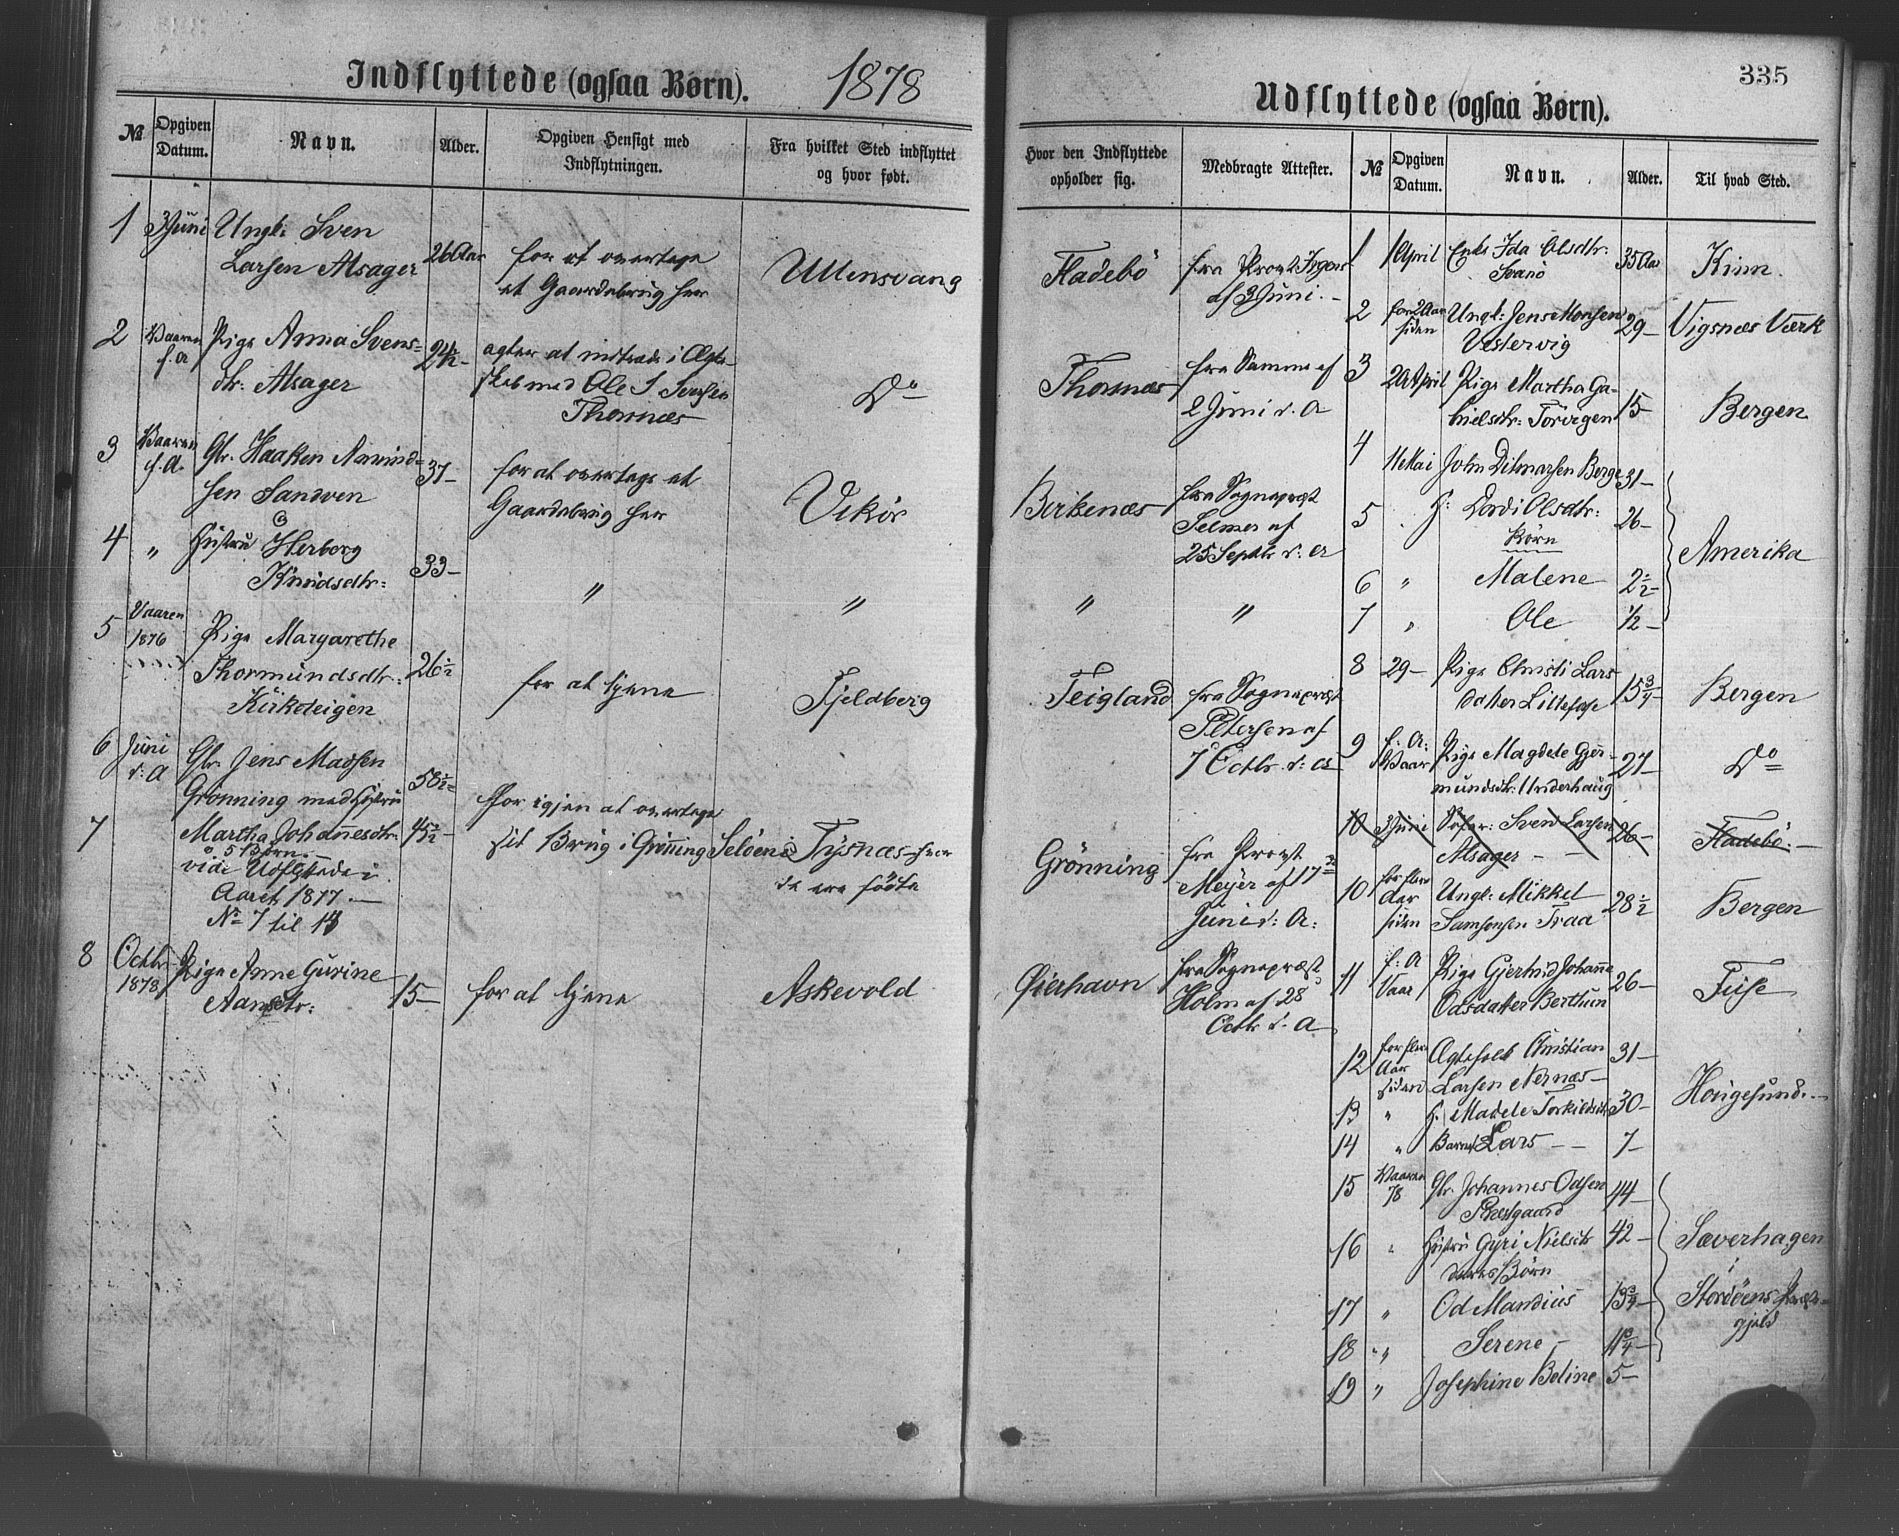 Indflyttede (ogsaa Børn). 1878
№ Opgiven Datum. Navn. Alder. Opgiven Hensigt med Indflytningen. Fra hvilket Sted indflyttet og hvor født.
1 3 Juni Ungk: Sven
Larsen Alsager 26 Aar for at overtage
et Gaardebrug her Ullensvang
2 Vaaren f. A Pige Anna Svens-
dtr: Alsager 24½ agter at indtræde i Ægte-
skab med Ole S. Iversen
Thornæs Do
3 Vaaren f. A. Gbr. Haaken Amund-
sen Sandven 37 for at overtage et
Gaardebrug her Vikör
4 " Hustru Herborg
Knudsdtr: 33 " "
5 Vaaren 1876 Pige Margarethe
Thormundsdtr:
Kirketeigen 26½ for at tjene Fjeldberg
6 Juni d: A Gbr. Jens Madsen
Grønning med Hustru 58½ for igjen at overtage
7 Martha Johannesdtr. 45½ sit Brug i Grønning Selöen Tysnæs hvor
o 5 Børn. de ere fødte
vide Udflyttede i
Aaret 1877.
No 7 til 13
8 Octbr 1878 Pige Anne Gurine
Aansdtr: 15 for at tjene Askevold
335
Udflyttede (ogsaa Børn).
Hvor den Indflyttede opholder sig. Medbragte Attester. № Opgiven Datum. Navn. Alder. Til hvad Sted.
Fladebö fra Provst
af 3 Juni.
Thornæs fra Samme af
2 Juni d. A
Birkenæs fra Sognepræst
Selmer af
25 Septbr d: A
" "
Teigland fra Sognepræst
Petersen af
7 Octbr. d: A
Grönning fra Provst
Meyer af 17de
Juni d: A:
Øierhavn fra Sognepræst
Holm af 28
Octbr d. A
1 1 April Enke Ida Olsdtr:
Svanö 35 Aar Kinn.
2 for 2 Aar siden Ungk: Jens Monsen
Vestervig 29 Vigsnæs Værk
3 20 April Pige Martha Ga-
brielsdtr: 15 Bergen
4 11 Mai John Ditmarsen Berge 31
5 H: Dordi Olsdtr: 26
Børn
Amerika
6 " Malene 2½
7 " Ole ½
8 29 Pige Christi Lars
datter 15¾ Bergen
9 f: A: Vaar Pige Magdele Gjer-
mundsdtr: Underhaug 27 Do
10 3 Juni Sven Larsen
Alsager 26 Fladebö.
10 for flere Aar siden Ungk: Mikkel
Samsonsen Traa 28½ Bergen
11 f: A Vaar Pige Gjertrud Johanne
Odsdatter Berthun 26 Fuse
12 for flere Aar siden Ægtefolk Christian
Larsen Nernæs 31
13 " H. Madele Torkildsdtr 30 Hougesund.
14 " Barnet Lars 7
15 Vaaren 78 Gbr. Johannes Odsen
Præstgaard 44
16 " Hustru Gyri Nielsdtr 42 Sæverhagen
deres Børn
17 " Od Mandius 13¾ Stordöens Præste-
gjeld
18 " Serene 11¾
19 " Josephine Boline 5